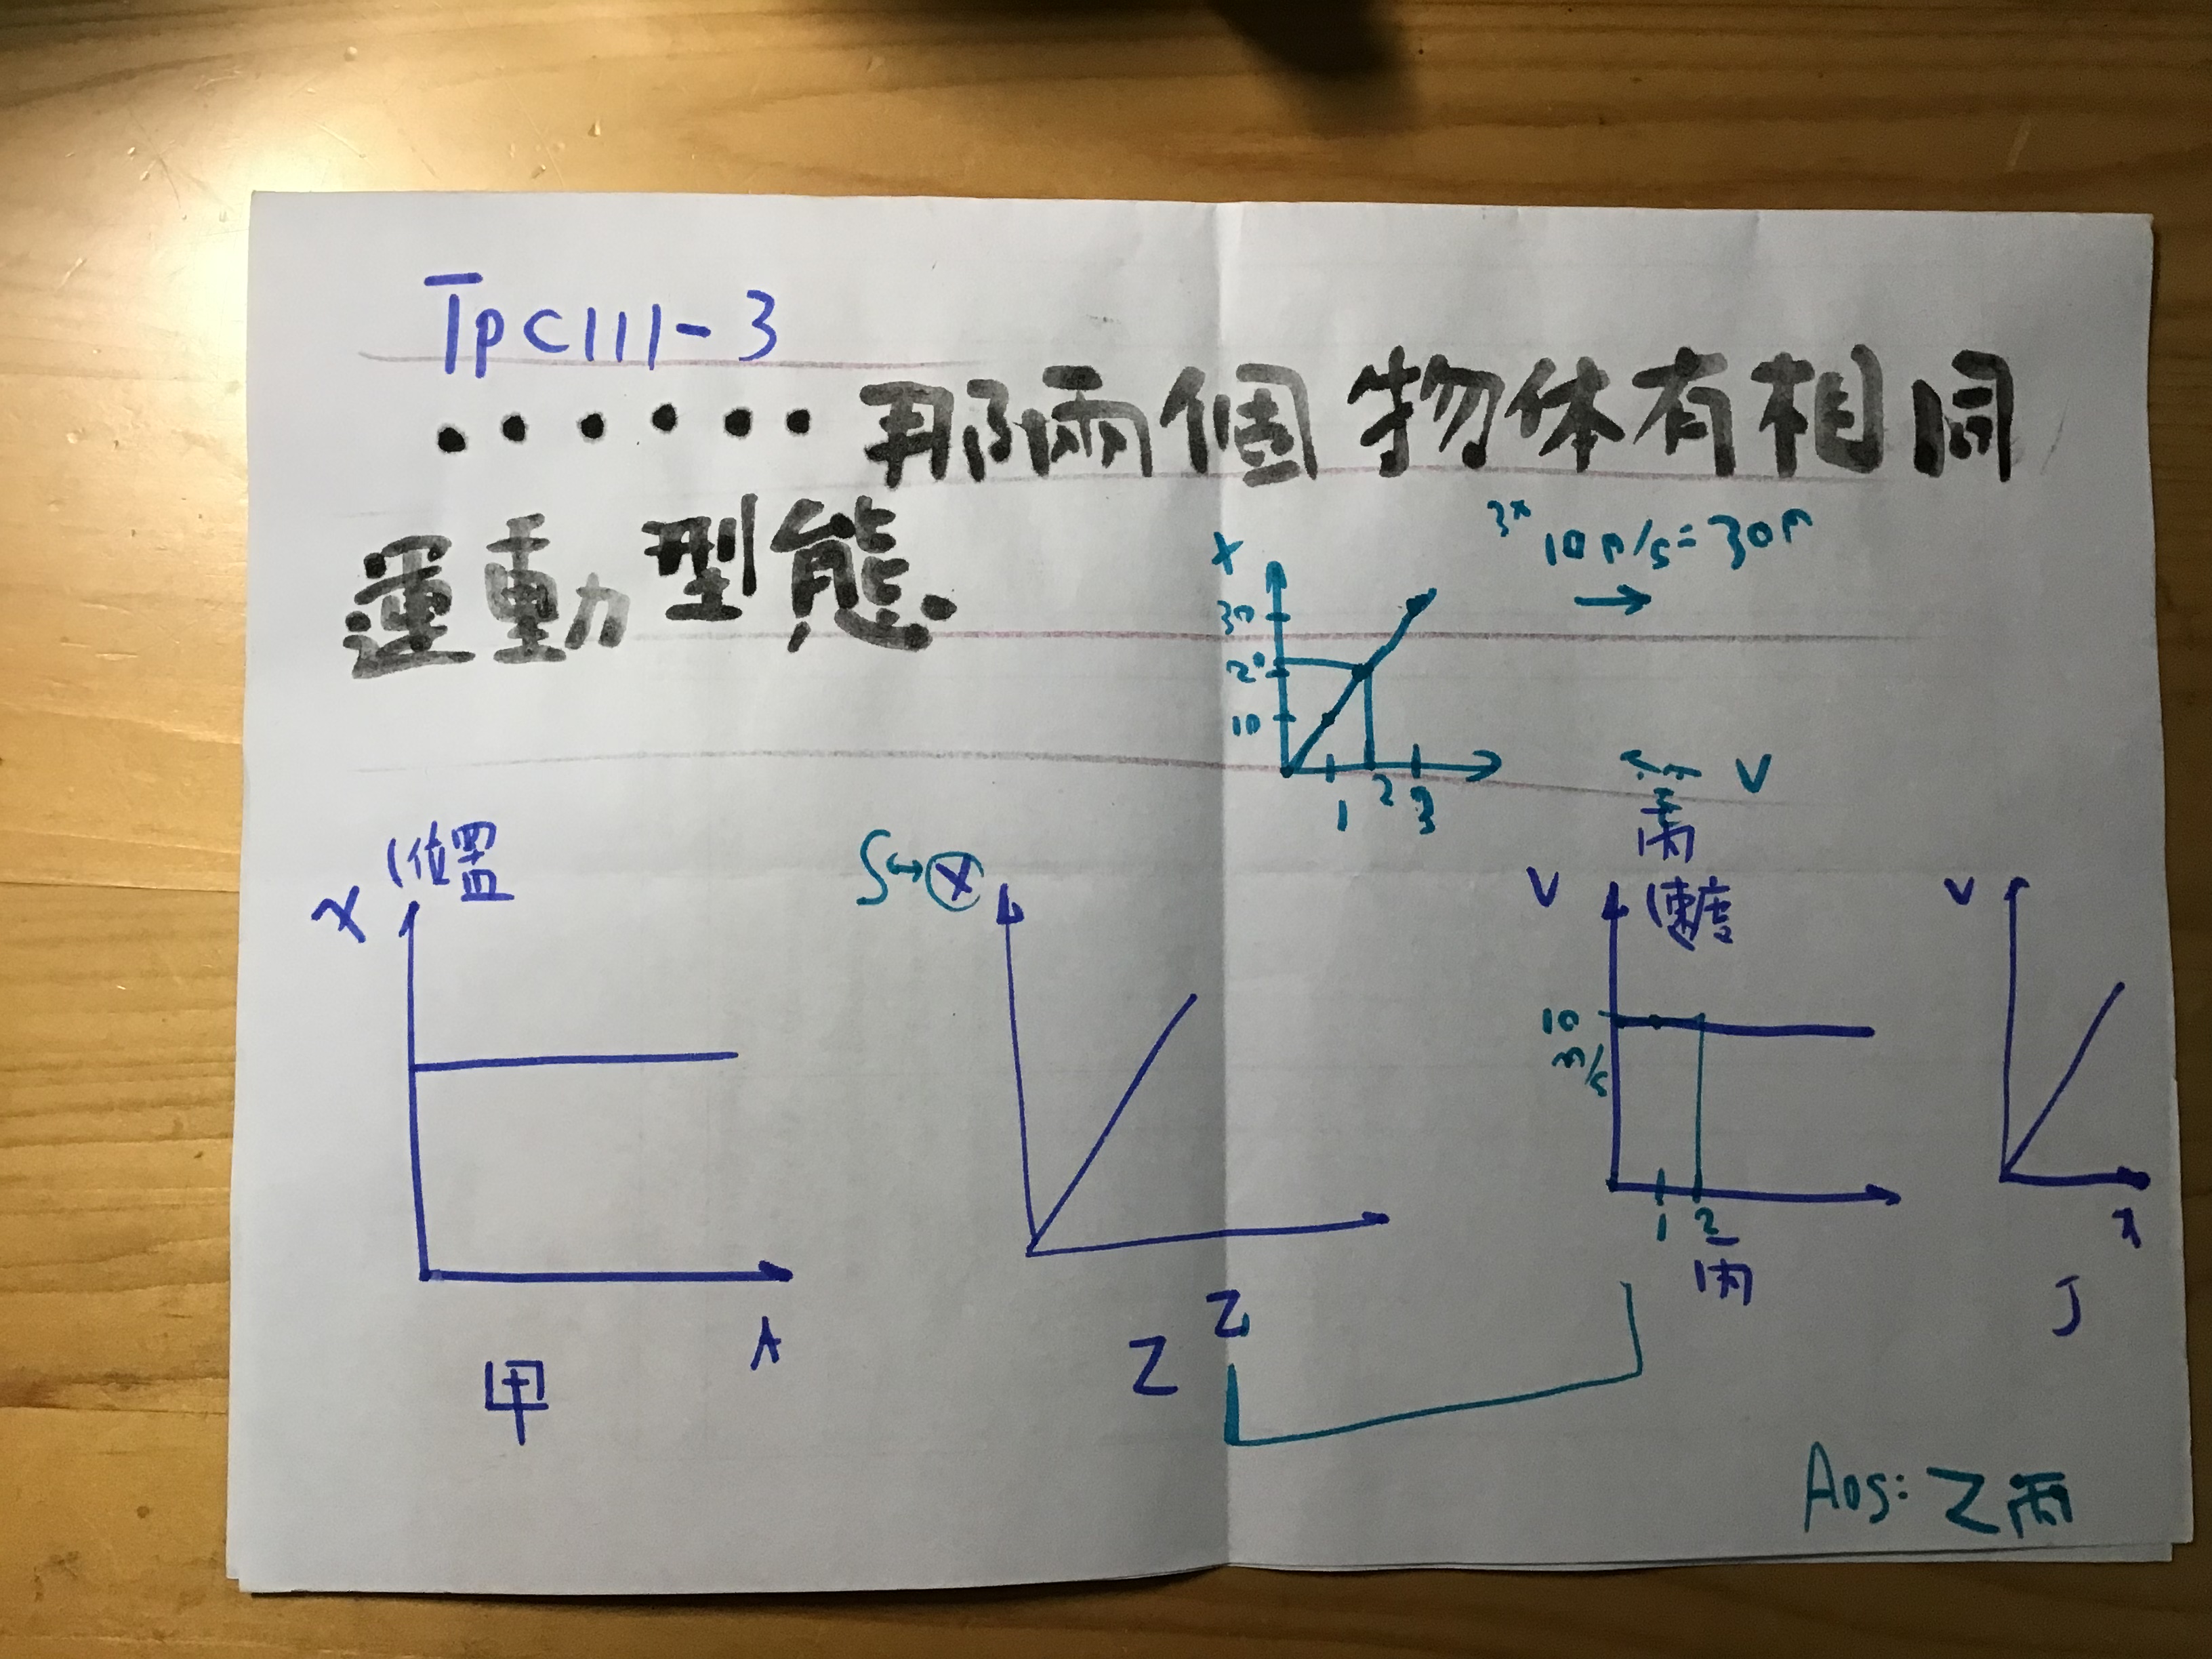 TPC111-3
......那兩個物体有相同
運動型態.
3x 10m/s=30m
→
X
30
20
10
1 2 3
V
丙
X 位置
S↔X
V 速度
V
10
m/s
1 2
丙
t
甲
乙
乙
t
丁
Ans: 乙丙